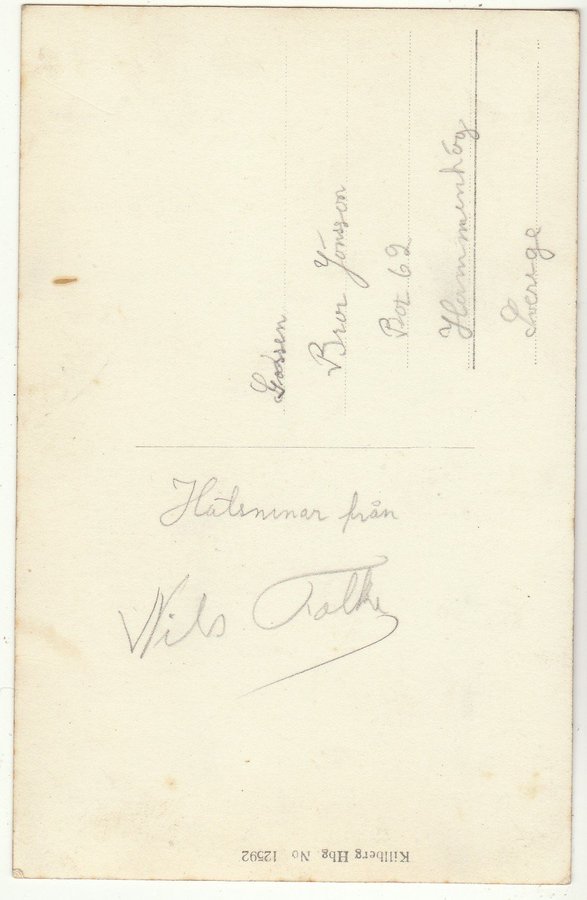 Gossen
Bror Jönsson
Box 62
Hammenhög
Sverige
Hälsninar från
Nils Folke
Killberg Hbg. No 12592